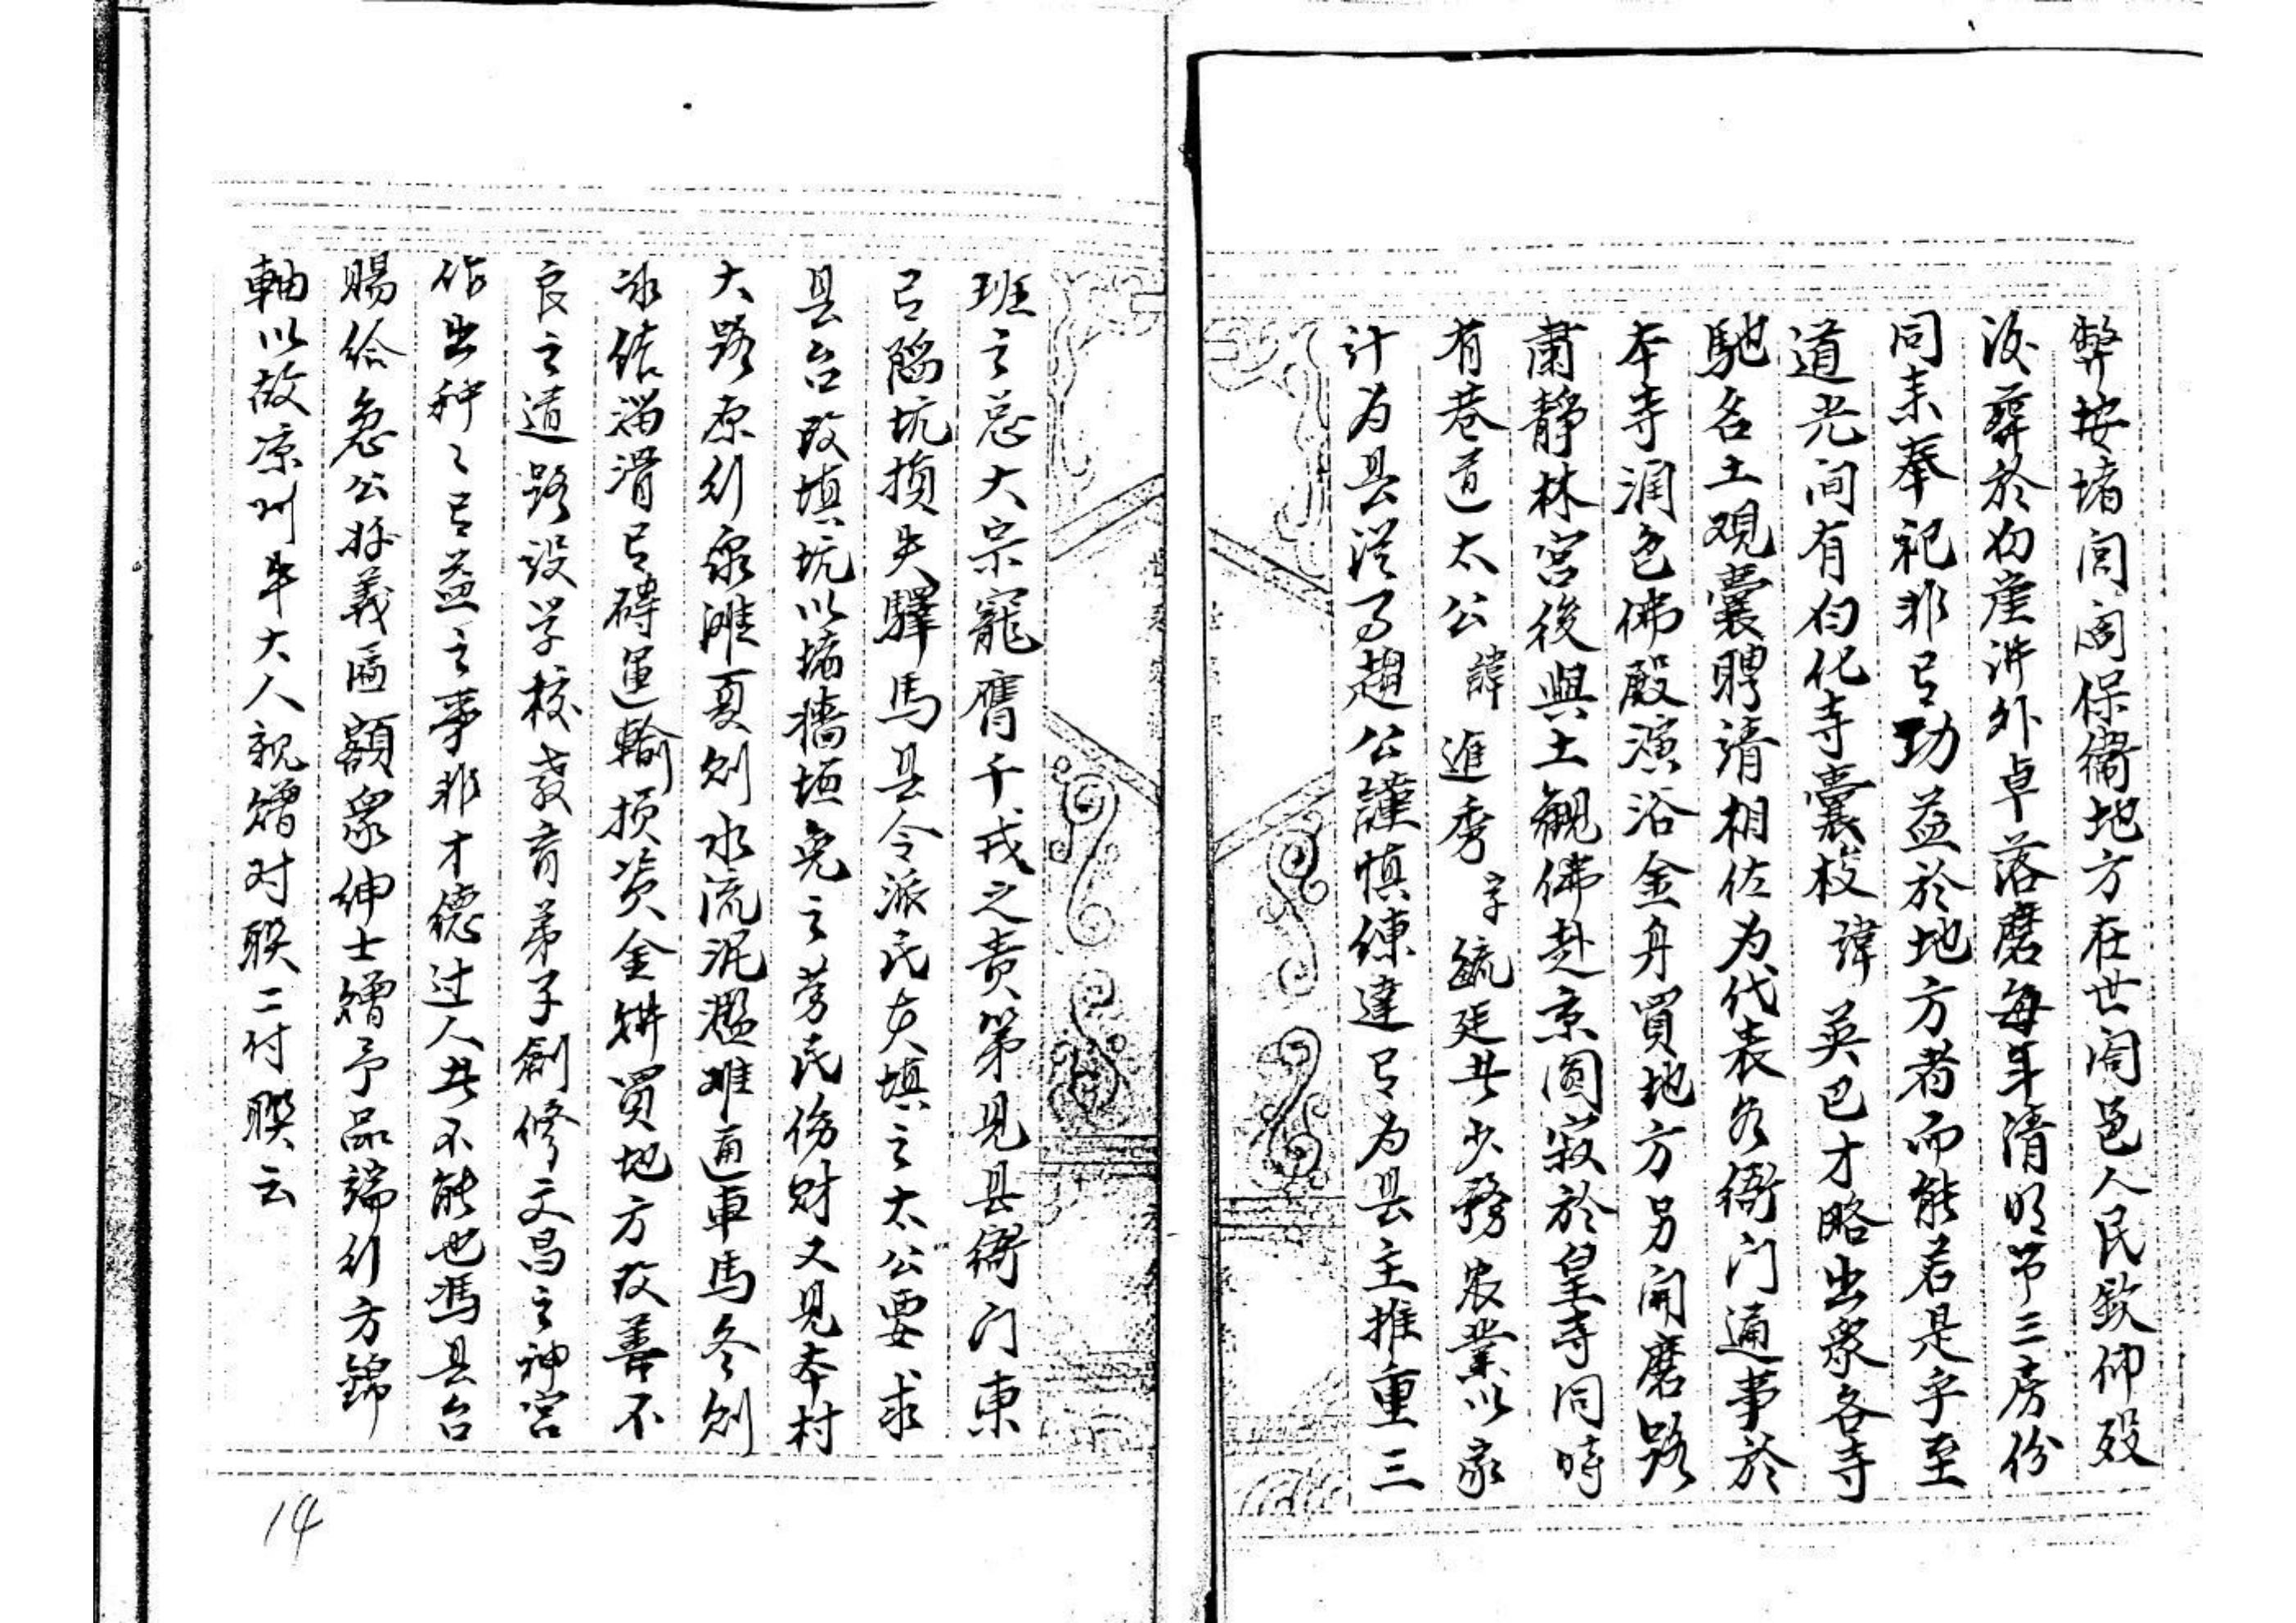 弊按堵闾阎保衛地方在世阖邑人民欽仰殁
後葬於白崖泋外卓落磨每年清明节三房份
同来奉祀非有功益於地方者而能若是乎至
道光间有白化寺囊枝諱英已才略出众各寺
馳名土观囊聘请相佐为代表各衙门通事於
本寺润色佛殿演浴金身買地方另開磨路
肅静林宫後與土観佛赴京圆寂於皇寺同時
有巷道太公諱進秀字毓廷共少務农業以家
计为县从了趙公謹慎练達有为县主推重三
班之总大宗寵膺千戎之责第見县衙门東
有陷坑损失驛馬县令派民夫填之太公要求
县台改填坑以墙牆垣免之劳民伤财又見本村
大路原列泉滩夏則水流泥濫难通車馬冬則
冰结滑有碍運輸损资金购買地方改善不
良之道路設学校教育弟子創修文昌之神宫
作出种々有益之事非才德过人共不能也馮县台
賜给急公好義匾額眾绅士赠予品端行方錦
軸以故凉州牛大人祝赠对联二付联云
14